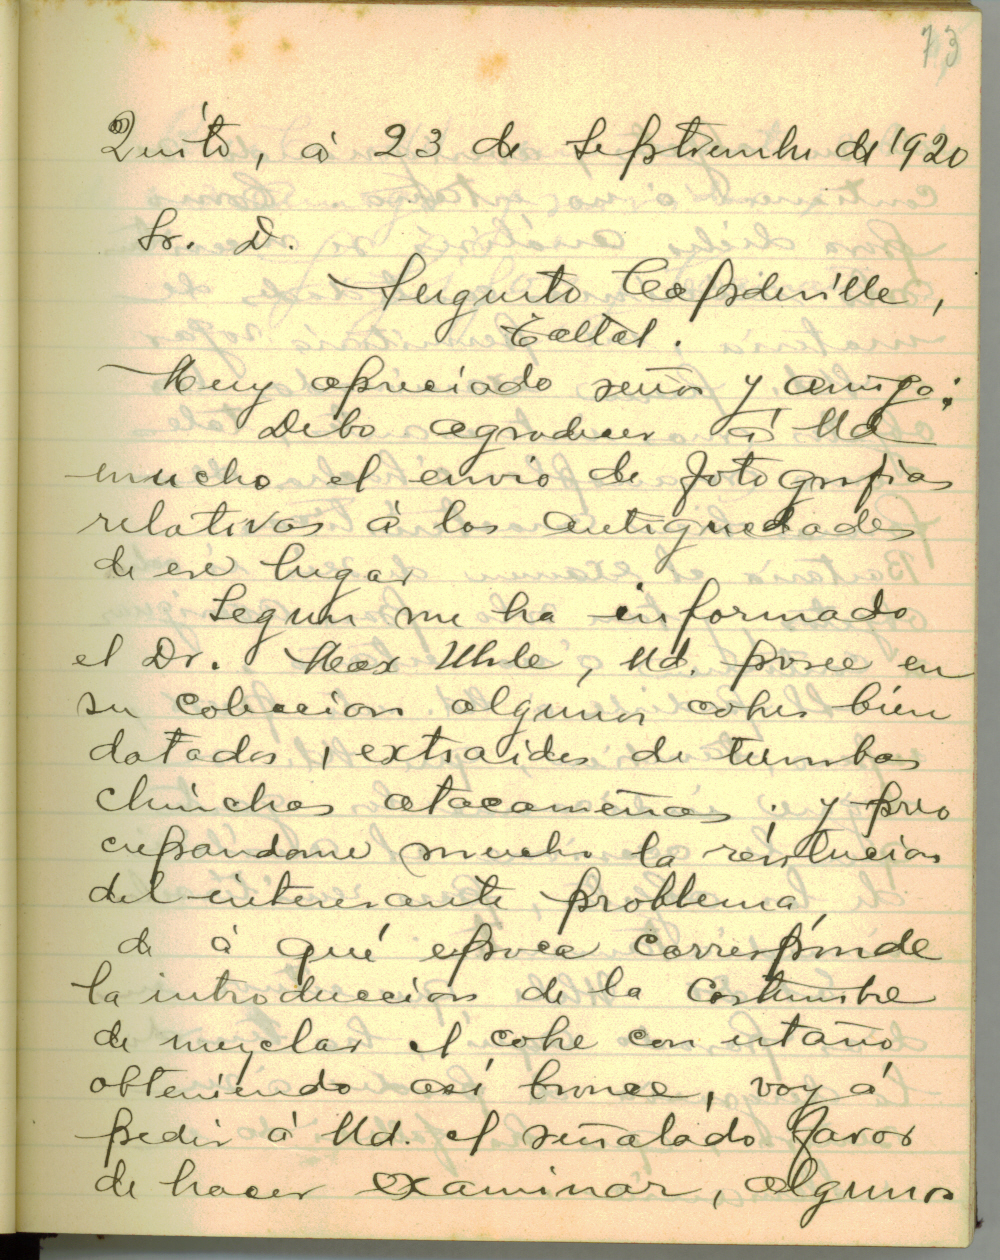 73
Quito, á 23 de Septiembre de 1920
Sr. D.
Augusto Capdeville,
Taltal.
Muy apreciado señor y amigo:
Debo agradecer á Ud
mucho el envio de fotografias
relativas á las antiguedades
de ese lugar
Segun me ha informado
el Dr. Max Uhle, Ud. posee en
su coleccion algunos cobres bien
datados, extraidos de tumbas
chinchas atacameñas; y preo
cupandome mucho la resolucion
del interesante problema,
de á qué epoca corresponde
la introduccion de la costumbre
de mezclar el cobre con estaño
obteniendo asi bronce, voy á
pedir á Ud. el señalado favor
de hacer examinar, algunos